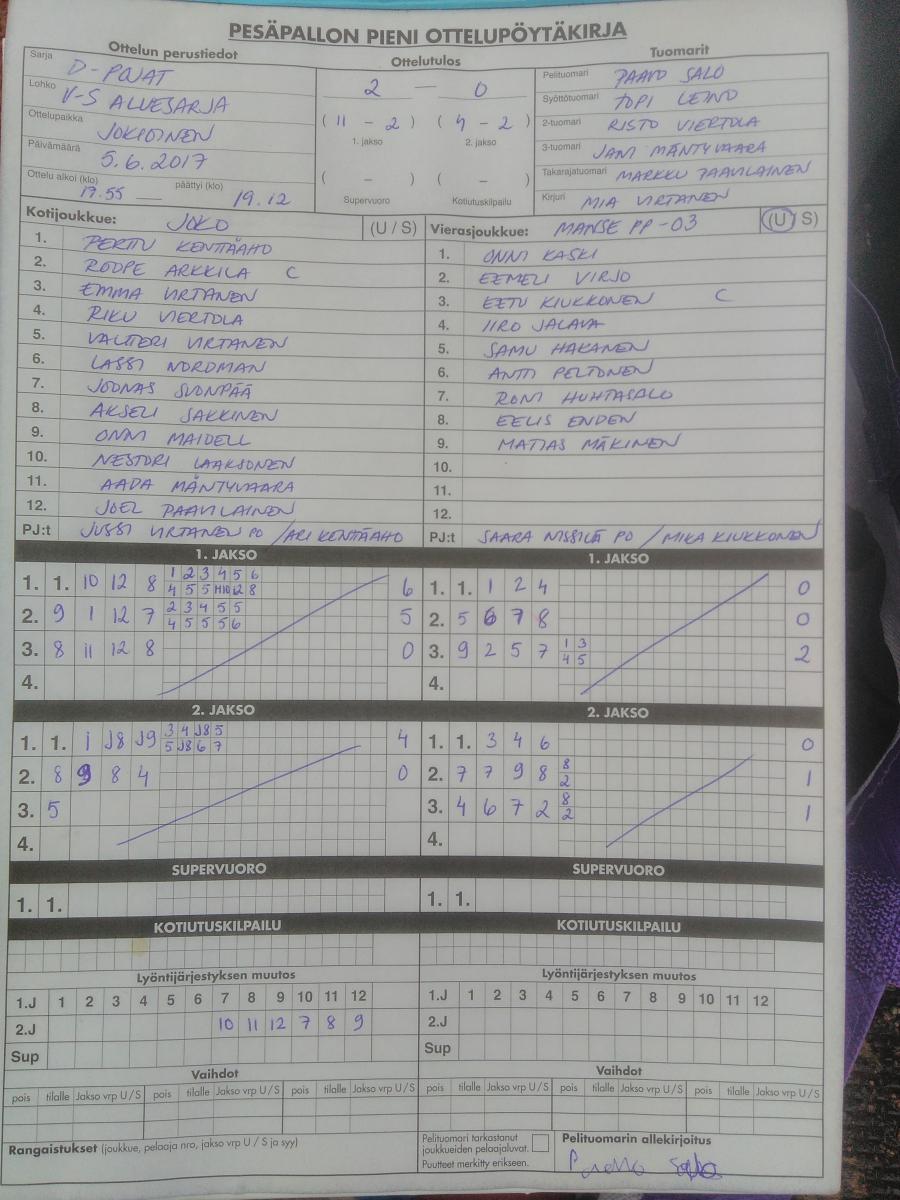 PESÄPALLON PIENI OTTELUPÖYTÄKIRJA
Ottelun perustiedot
Ottelutulos
Tuomarit
Sarja D-POJAT
Lohko V-S ALUESARJA
Ottelupaikka JOKIOINEN
Päivämäärä 5.6.2017
Ottelu alkoi (klo) 17.55 päättyi (klo) 19.12
2 — 0
( 11 - 2 ) ( 4 - 2 )
1. jakso 2. jakso
( - ) ( - )
Supervuoro Kotiutuskilpailu
Pelituomari PAAVO SALO
Syöttötuomari TOPI LEINO
2-tuomari RISTO VIERTOLA
3-tuomari JANI MÄNTYVAARA
Takarajatuomari MARKKU PAAVILAINEN
Kirjuri MIA VIRTANEN
Kotijoukkue: JOKO (U / S)
1. PERTTU KENTÄÄHO
2. ROOPE ARKKILA C
3. EMMA VIRTANEN
4. RIKU VIERTOLA
5. VALTTERI VIRTANEN
6. LASSI NORDMAN
7. JOONAS SUONPÄÄ
8. AKSELI SAKKINEN
9. ONNI MAIDELL
10. NESTORI LAAKSONEN
11. AADA MÄNTYVAARA
12. JOEL PAAVILAINEN
PJ:t JUSSI VIRTANEN PO / ARI KENTÄÄHO
Vierasjoukkue: MANSE PP -03 (U / S)
1. ONNI KASKI
2. EEMELI VIRJO
3. EETU KIUKKONEN C
4. IIRO JALAVA
5. SAMU HAKANEN
6. ANTTI PELTONEN
7. RONI HUHTASALO
8. EELIS ENDEN
9. MATIAS MÄKINEN
10.
11.
12.
PJ:t SAARA NISSILÄ PO / MIKA KIUKKONEN
1. JAKSO
1. 1. 10 12 8 1 2 3 4 5 6 6
4 5 5 11 10 12 8
2. 9 1 12 7 2 3 4 5 5 5
4 5 5 5 6
3. 8 11 12 8 0
4.
1. JAKSO
1. 1. 1 2 4 0
2. 5 6 7 8 0
3. 9 2 5 7 1 3 2
4 5
4.
2. JAKSO
1. 1. 1 J8 J9 3 4 J8 5 4
5 J8 6 7
2. 8 9 8 4 0
3. 5
4.
2. JAKSO
1. 1. 3 4 6 0
2. 7 7 9 8 8 1
2
3. 4 6 7 2 8 1
2
4.
SUPERVUORO
1. 1.
SUPERVUORO
1. 1.
KOTIUTUSKILPAILU
KOTIUTUSKILPAILU
Lyöntijärjestyksen muutos
1.J 1 2 3 4 5 6 7 8 9 10 11 12
2.J 10 11 12 7 8 9
Sup
Lyöntijärjestyksen muutos
1.J 1 2 3 4 5 6 7 8 9 10 11 12
2.J
Sup
Vaihdot
pois tilalle Jakso vrp U / S pois tilalle Jakso vrp U / S pois tilalle Jakso vrp U / S
Vaihdot
pois tilalle Jakso vrp U / S pois tilalle Jakso vrp U / S pois tilalle Jakso vrp U / S
Rangaistukset (joukkue, pelaaja nro, jakso vrp U / S ja syy)
Pelituomari tarkastanut
joukkueiden pelaajaluvat.
Puutteet merkitty erikseen.
Pelituomarin allekirjoitus